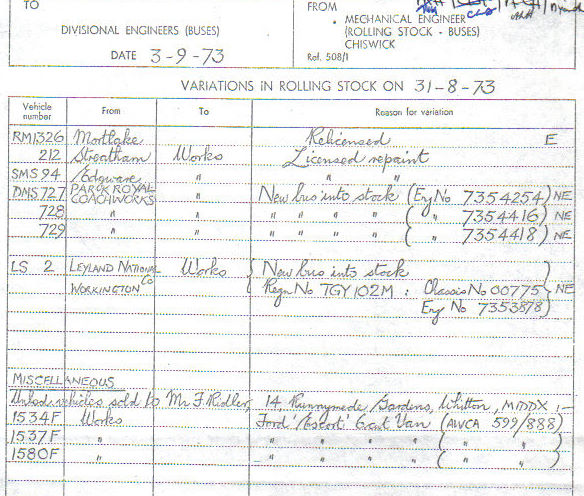 TO
FROM
DIVISIONAL ENGINEERS (BUSES)
MECHANICAL ENGINEER
(ROLLING STOCK - BUSES)
CHISWICK
DATE 3-9-73
Ref. 508/1
VARIATIONS IN ROLLING STOCK ON 31-8-73
Vehicle number From To Reason for variation
RM1326 Mortlake Relicensed E
212 Streatham Works Licensed repaint
SMS 94 Edgware " " "
DMS 727 PARK ROYAL COACHWORKS " New bus into stock (Eng No 7354254) NE
728 " " " " " " ( " 7354416) NE
729 " " " " " " ( " 7354418) NE
LS 2 LEYLAND NATIONAL Co Works { New bus into stock )
WORKINGTON Regn No TGY 102M : Chassis No 00775 } NE
Eng No 7353878 )
MISCELLANEOUS
Unlicd. vehicles sold to Mr F. Ridler, 14 Runnymede Gardens, Whitton, MIDDX :-
1534F Works Ford 'Escort' 6cwt Van (AWCA 599/888)
1537F " " " " " ( " )
1580F " " " " " ( " )